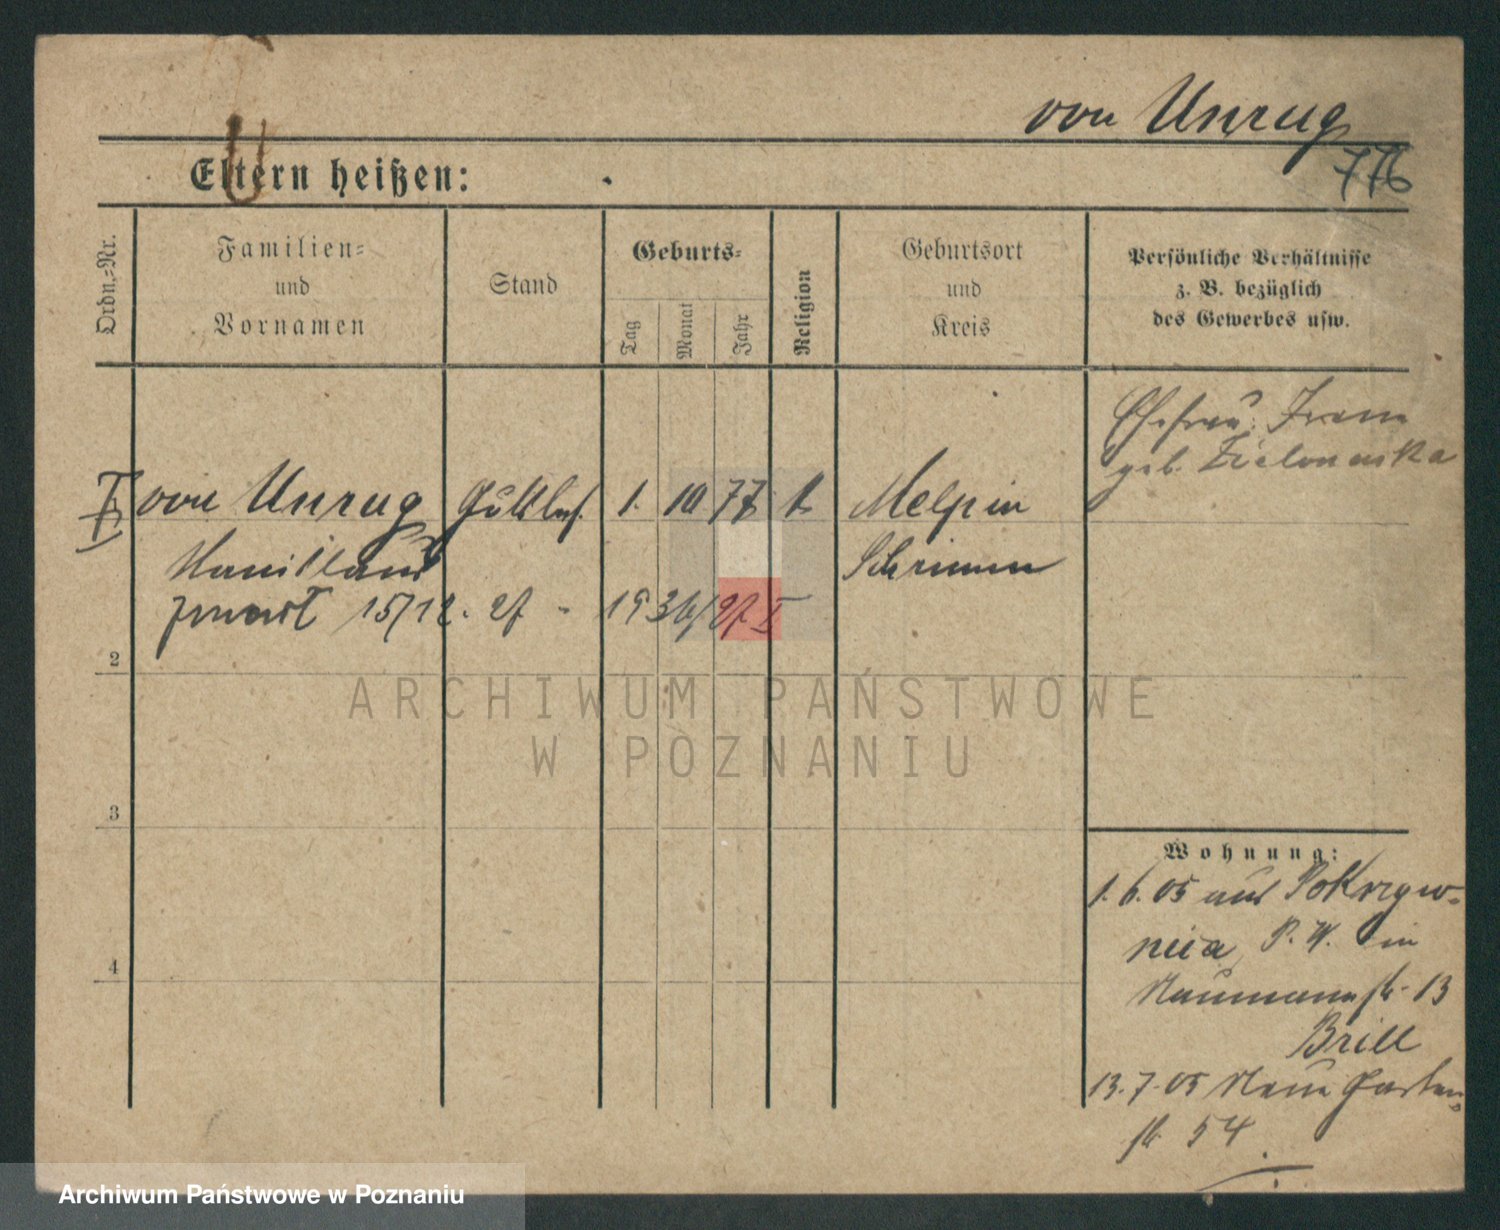 von Unrug
776
Eltern heißen:
Ordn.-Nr.
Familien-
und
Vornamen
Stand
Geburts-
Tag
Monat
Jahr
Religion
Geburtsort
und
Kreis
Persönliche Verhältnisse
z. B. bezüglich
des Gewerbes usw.
Ehefrau:
geb. Zielonacka
von Unrug Gutsbes. 1. 10 77 k. Melpin
Stanislaus Schrimm
zmarł 15/12. 27 - 
2
3
4
Wohnung:
1. 6. 05 aus Pokrzyw-
nica P. W. in
Naumannstr. 13
Brill
13. 7. 05 Neue Garten-
str 54
ARCHIWUM PAŃSTWOWE
W POZNANIU
Archiwum Państwowe w Poznaniu